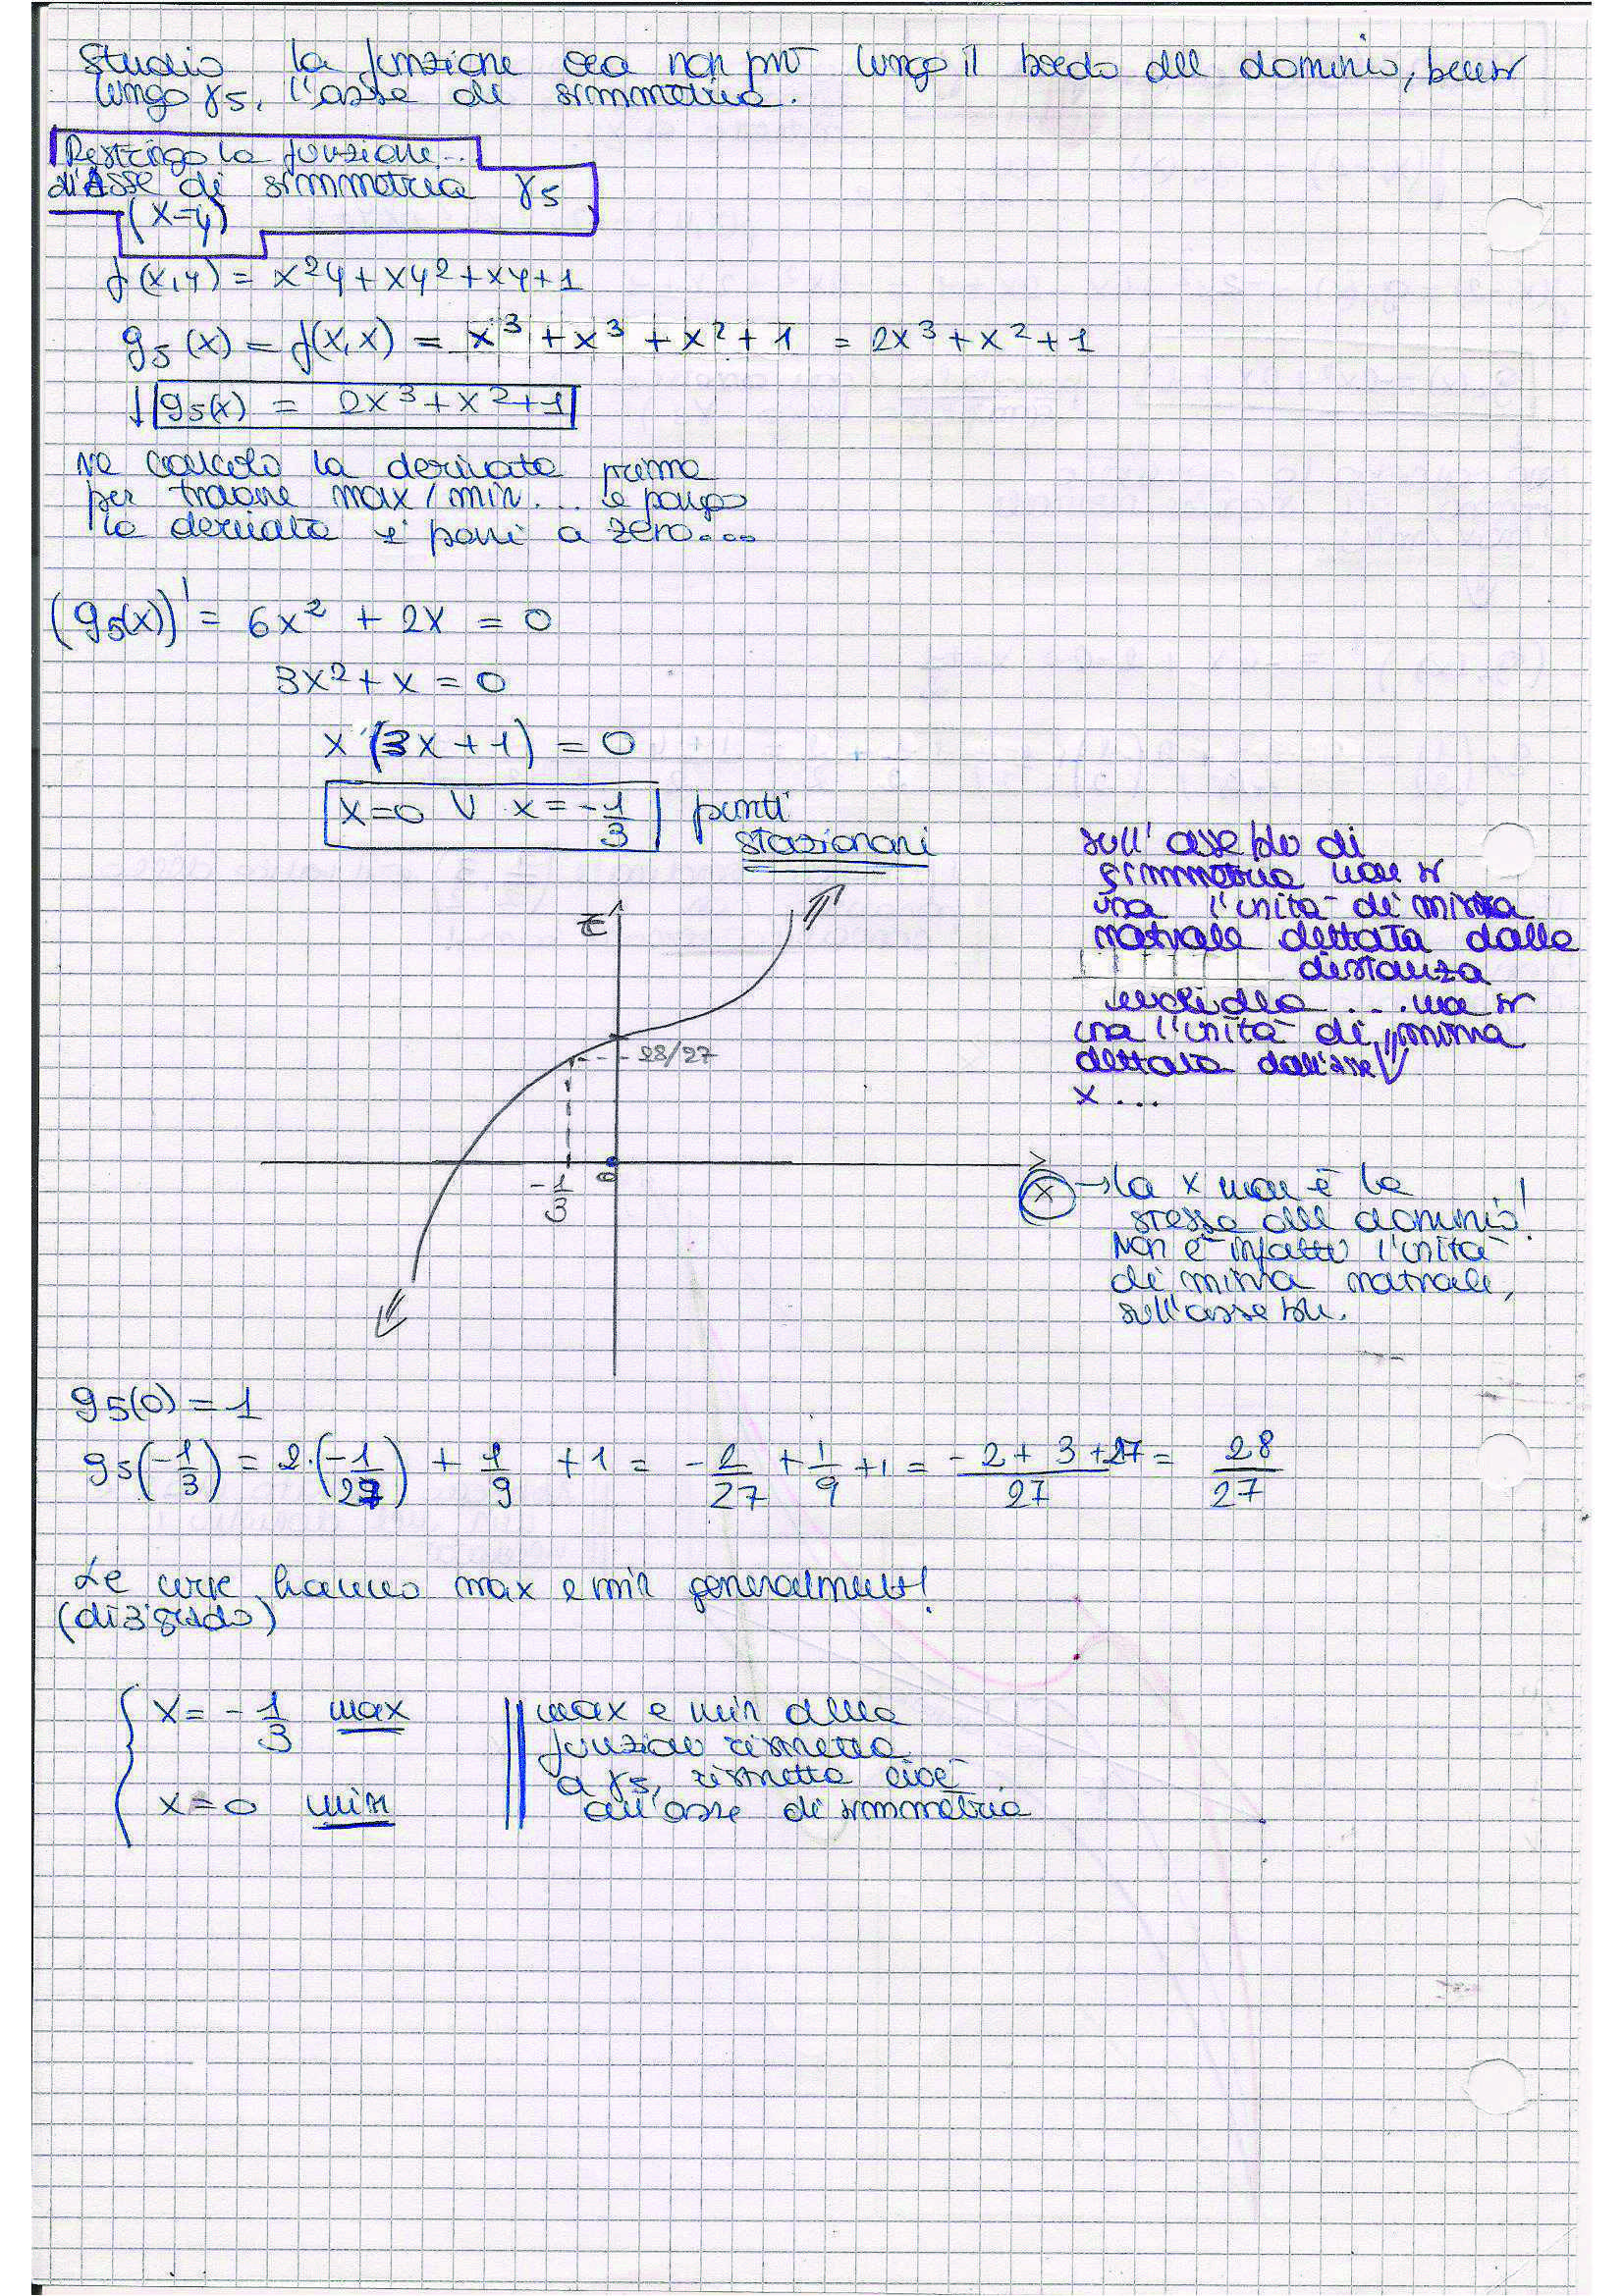 Studio la funzione ora non più lungo il bordo del dominio, bensì
lungo γ5, l'asse di simmetria.
Restringo la funzione...
all'Asse di simmetria γ5
(x=y)
f(x,y) = x²y + xy² + xy + 1
g5(x) = f(x,x) = x³ + x³ + x² + 1 = 2x³ + x² + 1
g5(x) = 2x³ + x² + 1
ne calcolo la derivata prima
per trovare max/min... e pongo
la derivata a zero...
(g5(x))' = 6x² + 2x = 0
3x² + x = 0
x (3x + 1) = 0
x=0 ∨ x = -1/3 punti
stazionari
sull'asse di
simmetria non si
usa l'unità di misura
naturale dettata dalla
distanza
euclidea .... ma si
usa l'unità di misura
dettata dall'asse
x ...
z
28/27
-1/3
0
x → la x non è la
stessa del dominio!
Non è infatti l'unità
di misura naturale,
sull'asse
g5(0) = 1
g5(-1/3) = 2·(-1/27) + 1/9 + 1 = -2/27 + 1/9 + 1 = (-2 + 3 + 27)/27 = 28/27
Le hanno max e min generalmente!
(di 3° grado)
x = -1/3 max
x = 0 min
max e min della
funzione ristretta
a γ5, ristretta cioè
all'asse di simmetria